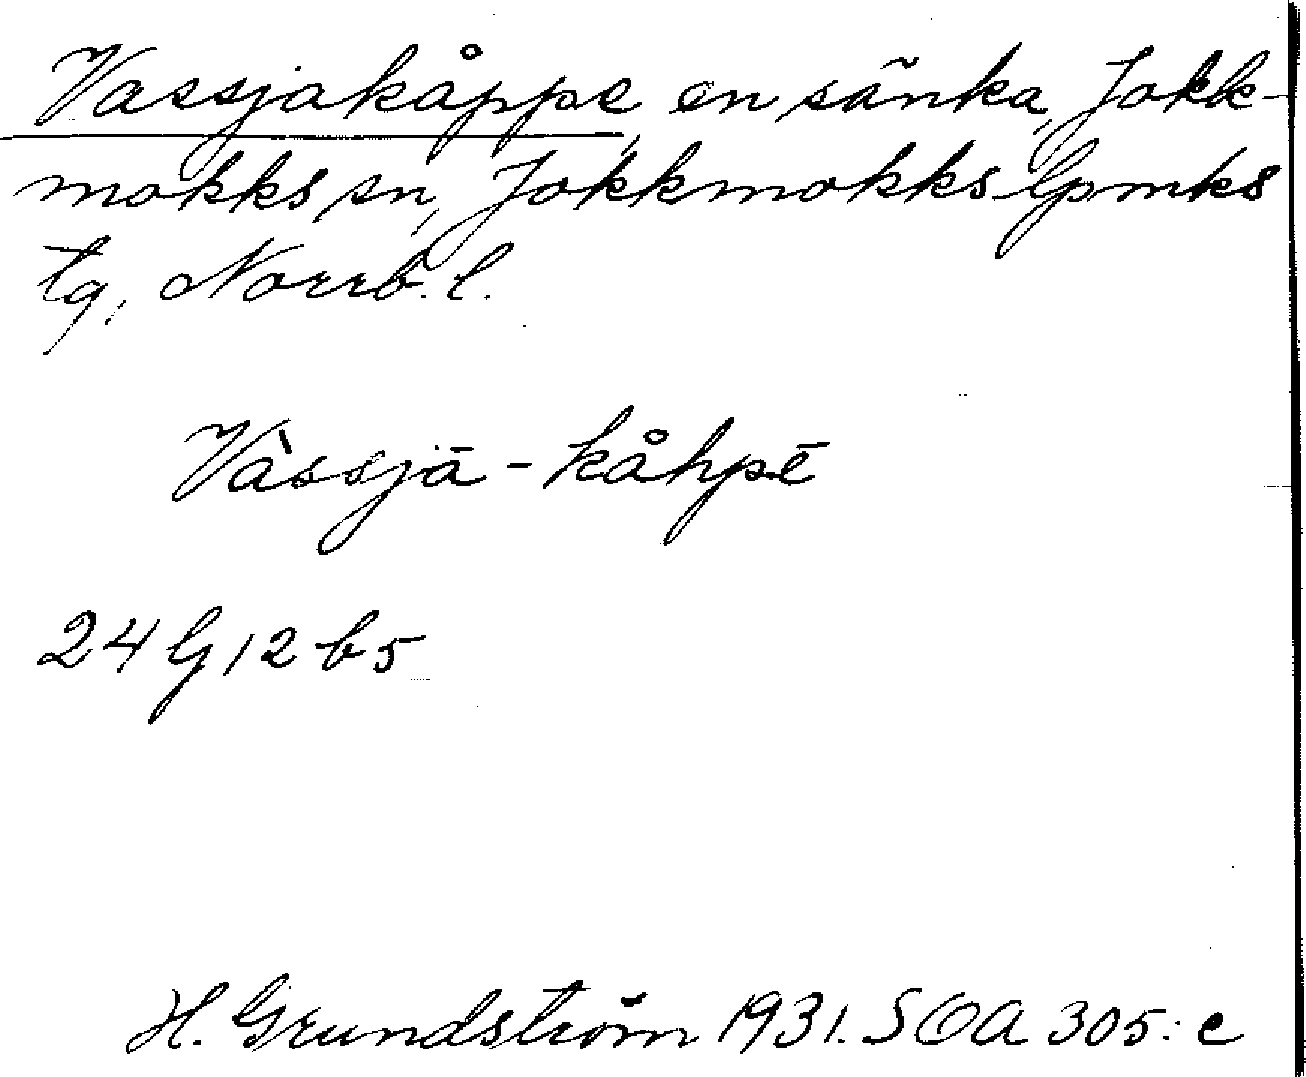 Vassjakåppe, en sänka, Jokk-
mokks sn, Jokkmokks lpmks
tg, Norrb. l.
Vàssjā - kåhpē
24 G 12 b 5
H. Grundström 1931. SOA 305: c